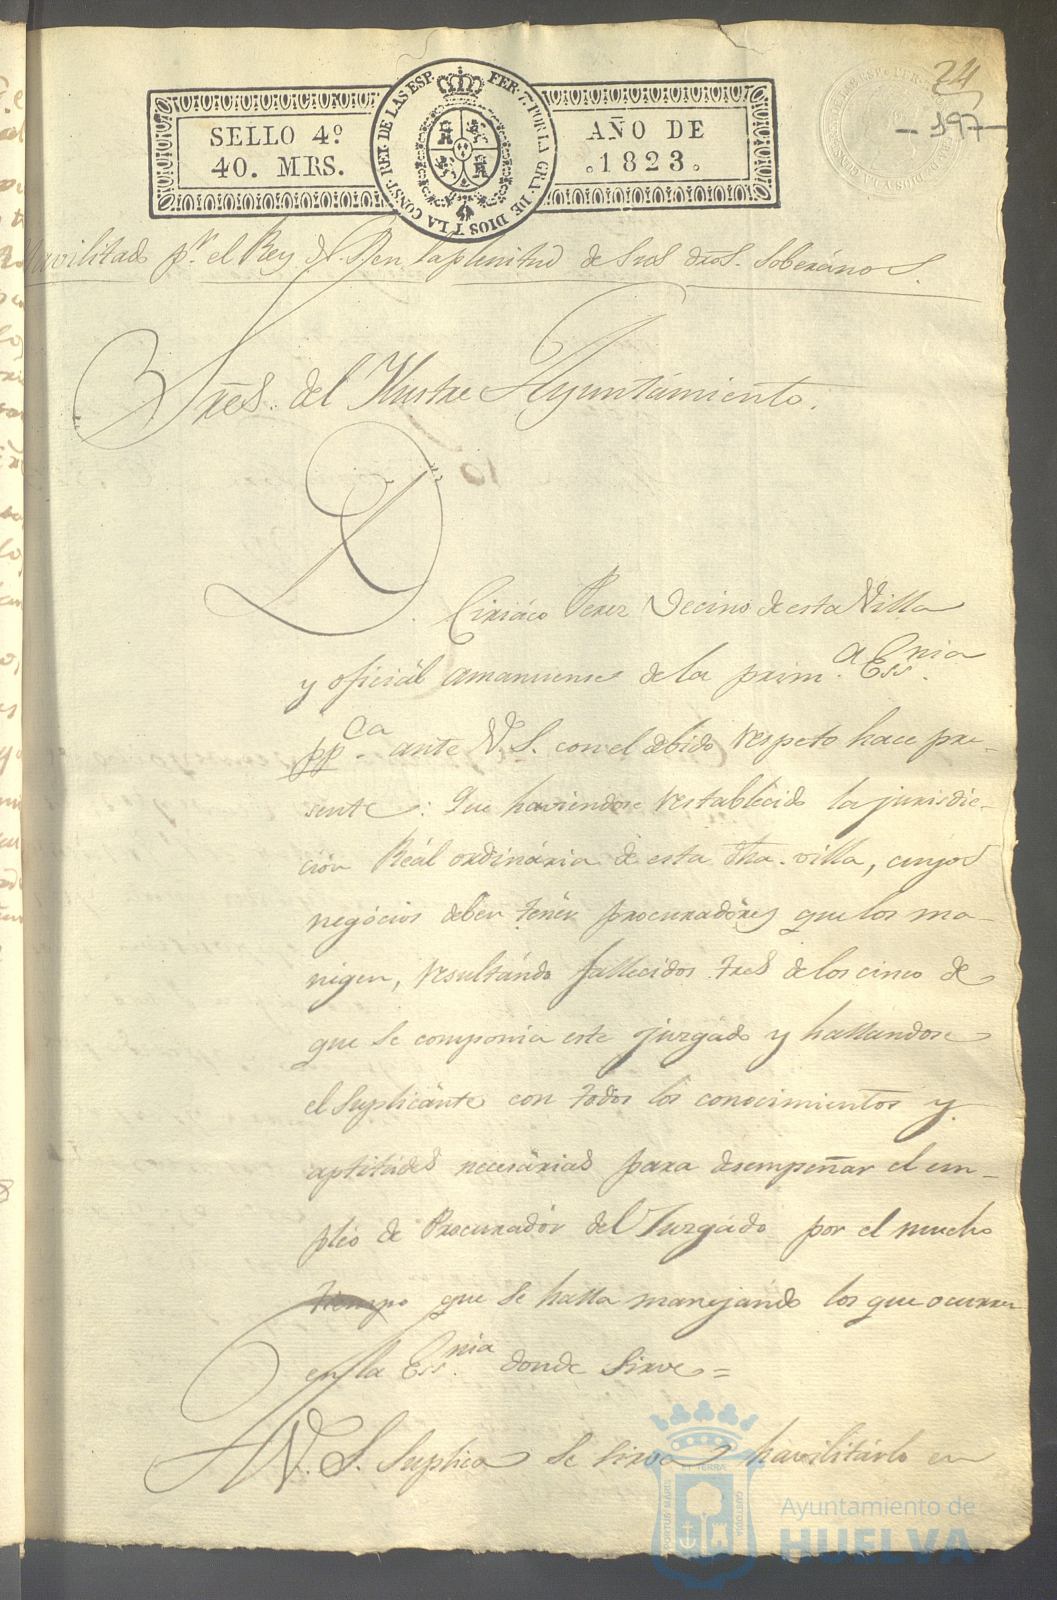 24
- 197 -
SELLO 4º
40. MRS.
FER. 7. POR LA GRA. DE DIOS Y LA CONST. REY. DE LAS ESP.
AÑO DE
1823
havilitado pr. el Rey N. S. en la plenitud de sus dros. Soberanos.
Sres. del Ilustre Ayuntamiento.
D. Ciriáco Perez Vecino de esta Villa
y oficiál amanuense de la prim.a Ess.nia
pp.ca ante V. S. con el debido respeto hace pre-
sente: Que haviendose restablecido la jurisdic-
ción Reál ordinária de esta dha. villa, cuyos
negócios deben tenér procuradóres que los ma-
nigen, resultándo fallecidos tres de los cinco de
que se componia este juzgádo y hallandose
el Suplicánte con todos los conocimientos y
aptitúdes necesárias para desempeñar el em-
pléo de Procuradór del Juzgádo por el mucho
tiempo que se halla manejándo los que ocurren
en la Ess.nia donde sirve =
A V. S. Suplica se sirva havilitárlo en
PORTUS MARIS
ET TERRÆ
CUSTODIA
Ayuntamiento de
HUELVA